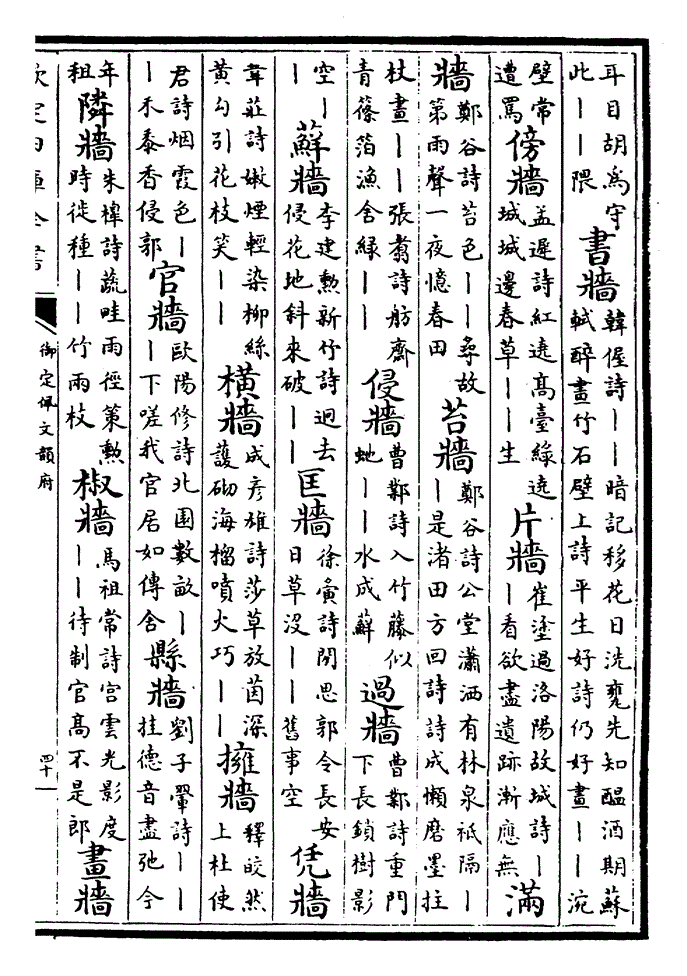 耳目胡為守此||隈 書牆 韓偓詩||暗記移花日洗甕先知醖酒期蘇軾醉畫竹石壁上詩平生好詩仍好畫||涴
壁常遭罵 傍牆 盖遲詩紅遶髙臺緑遶城城邊春草||生 片牆 崔塗過洛陽故城詩||看欲盡遺跡漸應無 滿
牆 鄭谷詩苔色||尋故第雨聲一夜憶春田 苔牆 鄭谷詩公堂瀟洒有林泉祗隔||是渚田方回詩詩成懶磨墨拄
杖畫||張翥詩舫齋青篠箔漁舍緑|| 侵牆 曹鄴詩入竹藤似虵||水成蘚 過牆 曹鄴詩重門下長鎖樹影
空|| 蘚牆 李建勲新竹詩迥去侵花地斜來破|| 匡牆 徐夤詩閒思郭令長安日草没||舊事空 凭牆
韋莊詩嫩煙輕染柳絲黄勾引花枝笑|| 橫牆 成彥雄詩莎草放茵深護砌海榴噴火巧|| 擁牆 釋皎然上杜使
君詩烟霞色||禾黍香侵郭 官牆 歐陽修詩北園數畝||下嗟我官居如傳舍 縣牆 劉子翬詩||挂德音盡弛今
年租 隣牆 朱槔詩蔬畦雨徑策勲時徙種||竹雨枝 椒牆 馬祖常詩宫雲光影度||待制官髙不是郎 畫牆
欽定四庫全書
御定佩文韻府
四十